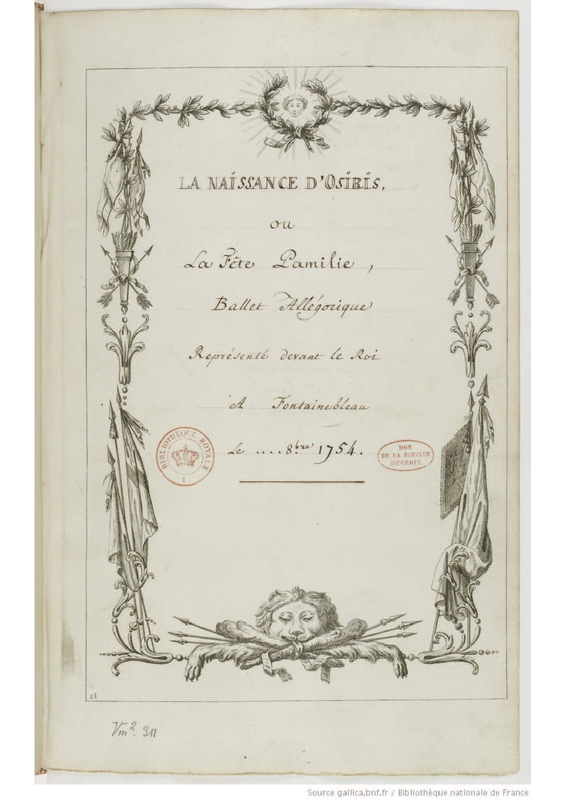 LA NAISSANCE D'OSIRIS,
ou
La Fête Pamilie,
Ballet Allégorique
Représenté devant le Roi
A Fontainebleau
Le .... 8.bre 1754.
BIBLIOTHEQUE ROYALE
I
DON
DE LA FAMILLE
DECROIX.
18
Vm². 311
Source gallica.bnf.fr / Bibliothèque nationale de France